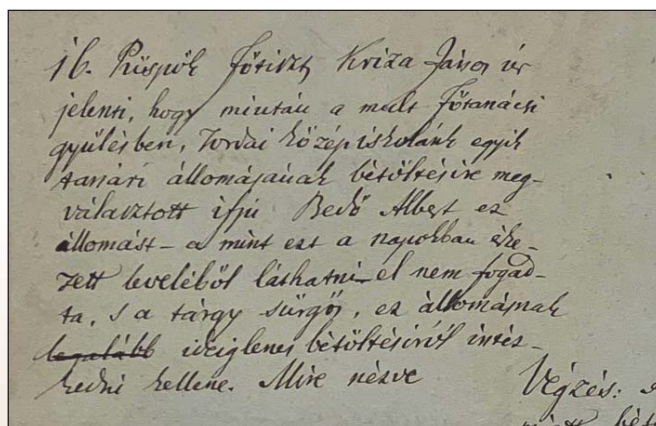 16. Püspök Főtiszt Kriza János úr
jelenti, hogy miután a mult Főtanácsi
gyűlésben, Tordai középiskolánk egyik
tanári állomásának bétöltésire meg-
választott ifjú Bedő Albert ez
állomást – a mint ezt a napokban érke-
zett leveléből láthatni – el nem fogad-
ta, s a tárgy sürgős, ez állomásnak
legalább ideiglenes bétöltésiről intéz-
kedni kellene. Mire nézve
Végzés: